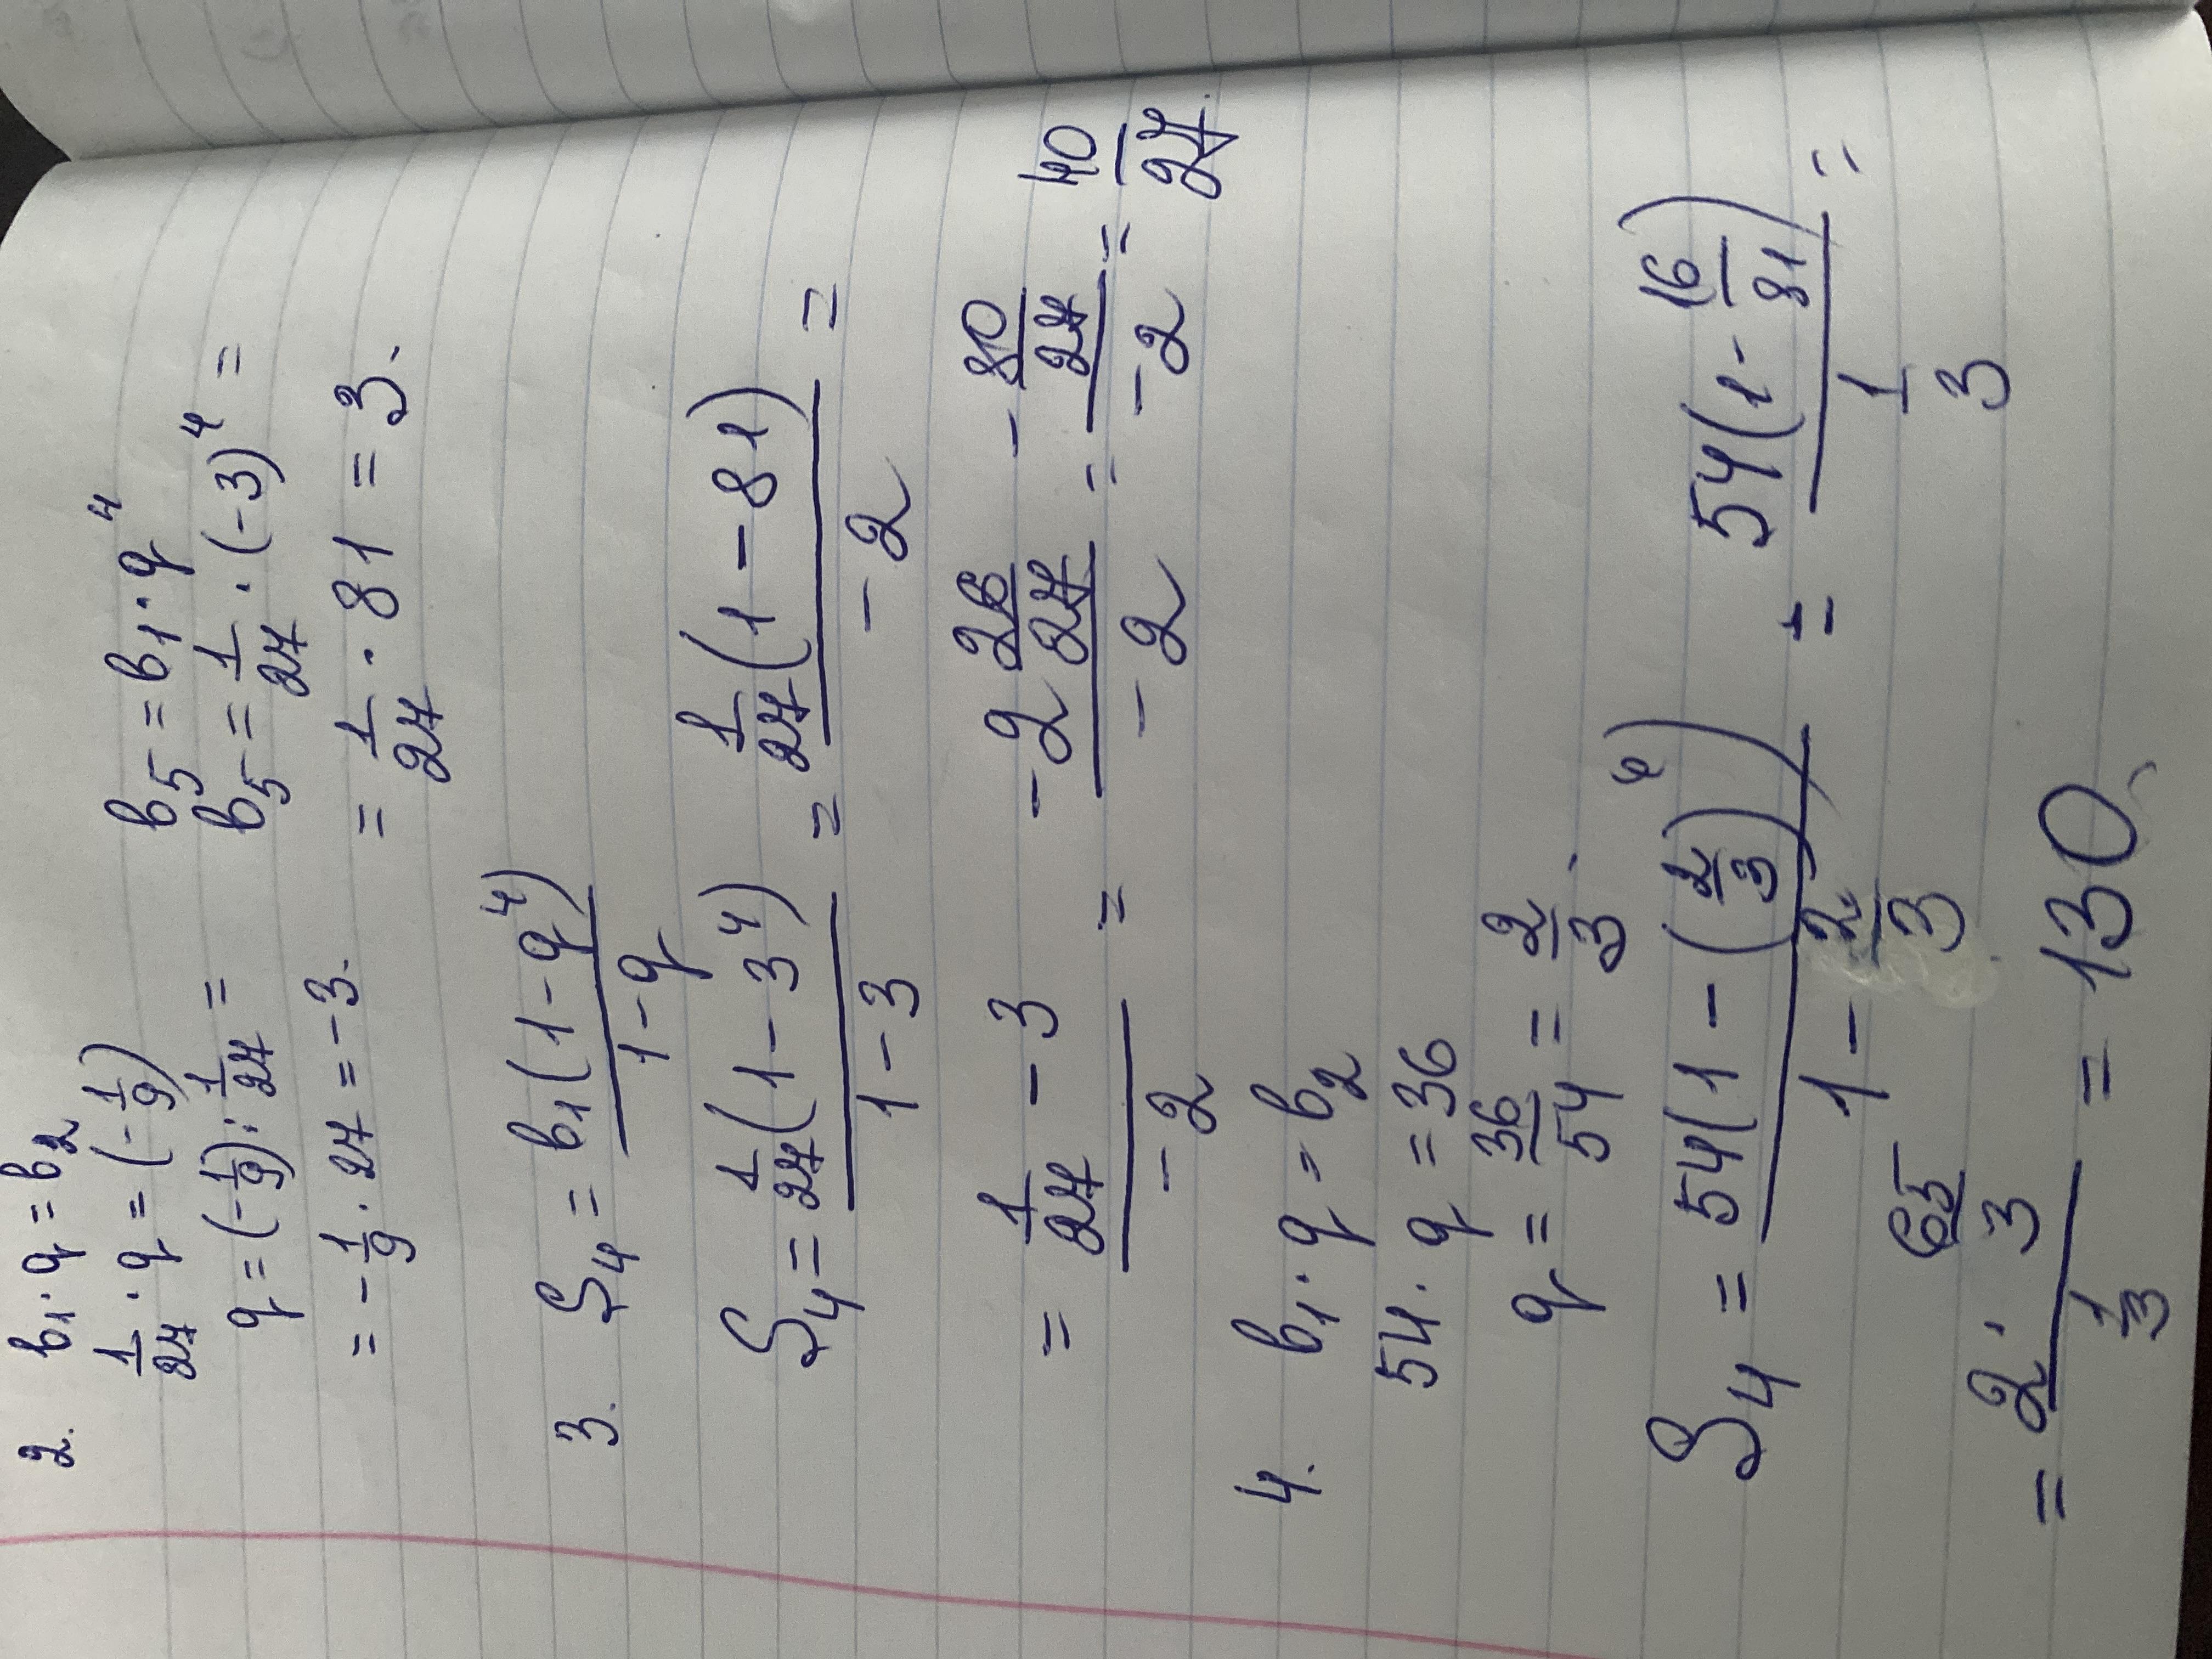 2. b₁·q = b₂
1/27 · q = (-1/9)
q = (-1/9) : 1/27 =
= -1/9 · 27 = -3.
b₅ = b₁·q⁴
b₅ = 1/27 · (-3)⁴ =
= 1/27 · 81 = 3.
3. S₄ = b₁(1-q⁴)/1-q
S₄ = 1/27(1-3⁴)/1-3 = 1/27(1-81)/-2 =
= 1/27 - 3/-2 = -2 26/27/-2 = -80/27/-2 = 40/27.
4. b₁·q = b₂
54·q = 36
q = 36/54 = 2/3.
S₄ = 54(1-(2/3)⁴)/1-2/3 = 54(1-16/81)/1/3 =
= 2·65/3/1/3 = 130.